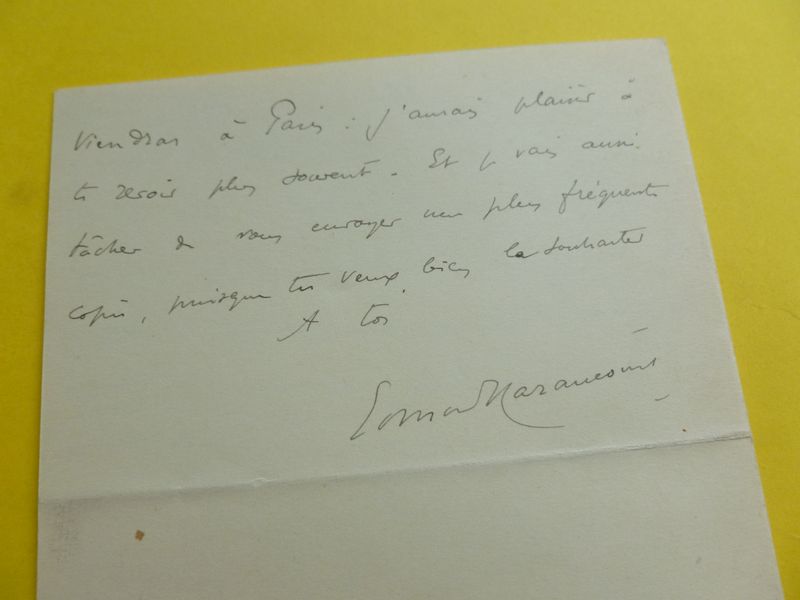 viendras à Paris : j'aurais plaisir à
te revoir plus souvent. Et je vais aussi
tâcher de vous envoyer une plus fréquente
copie, puisque tu veux bien la souhaiter
A toi
Edmond Haraucourt